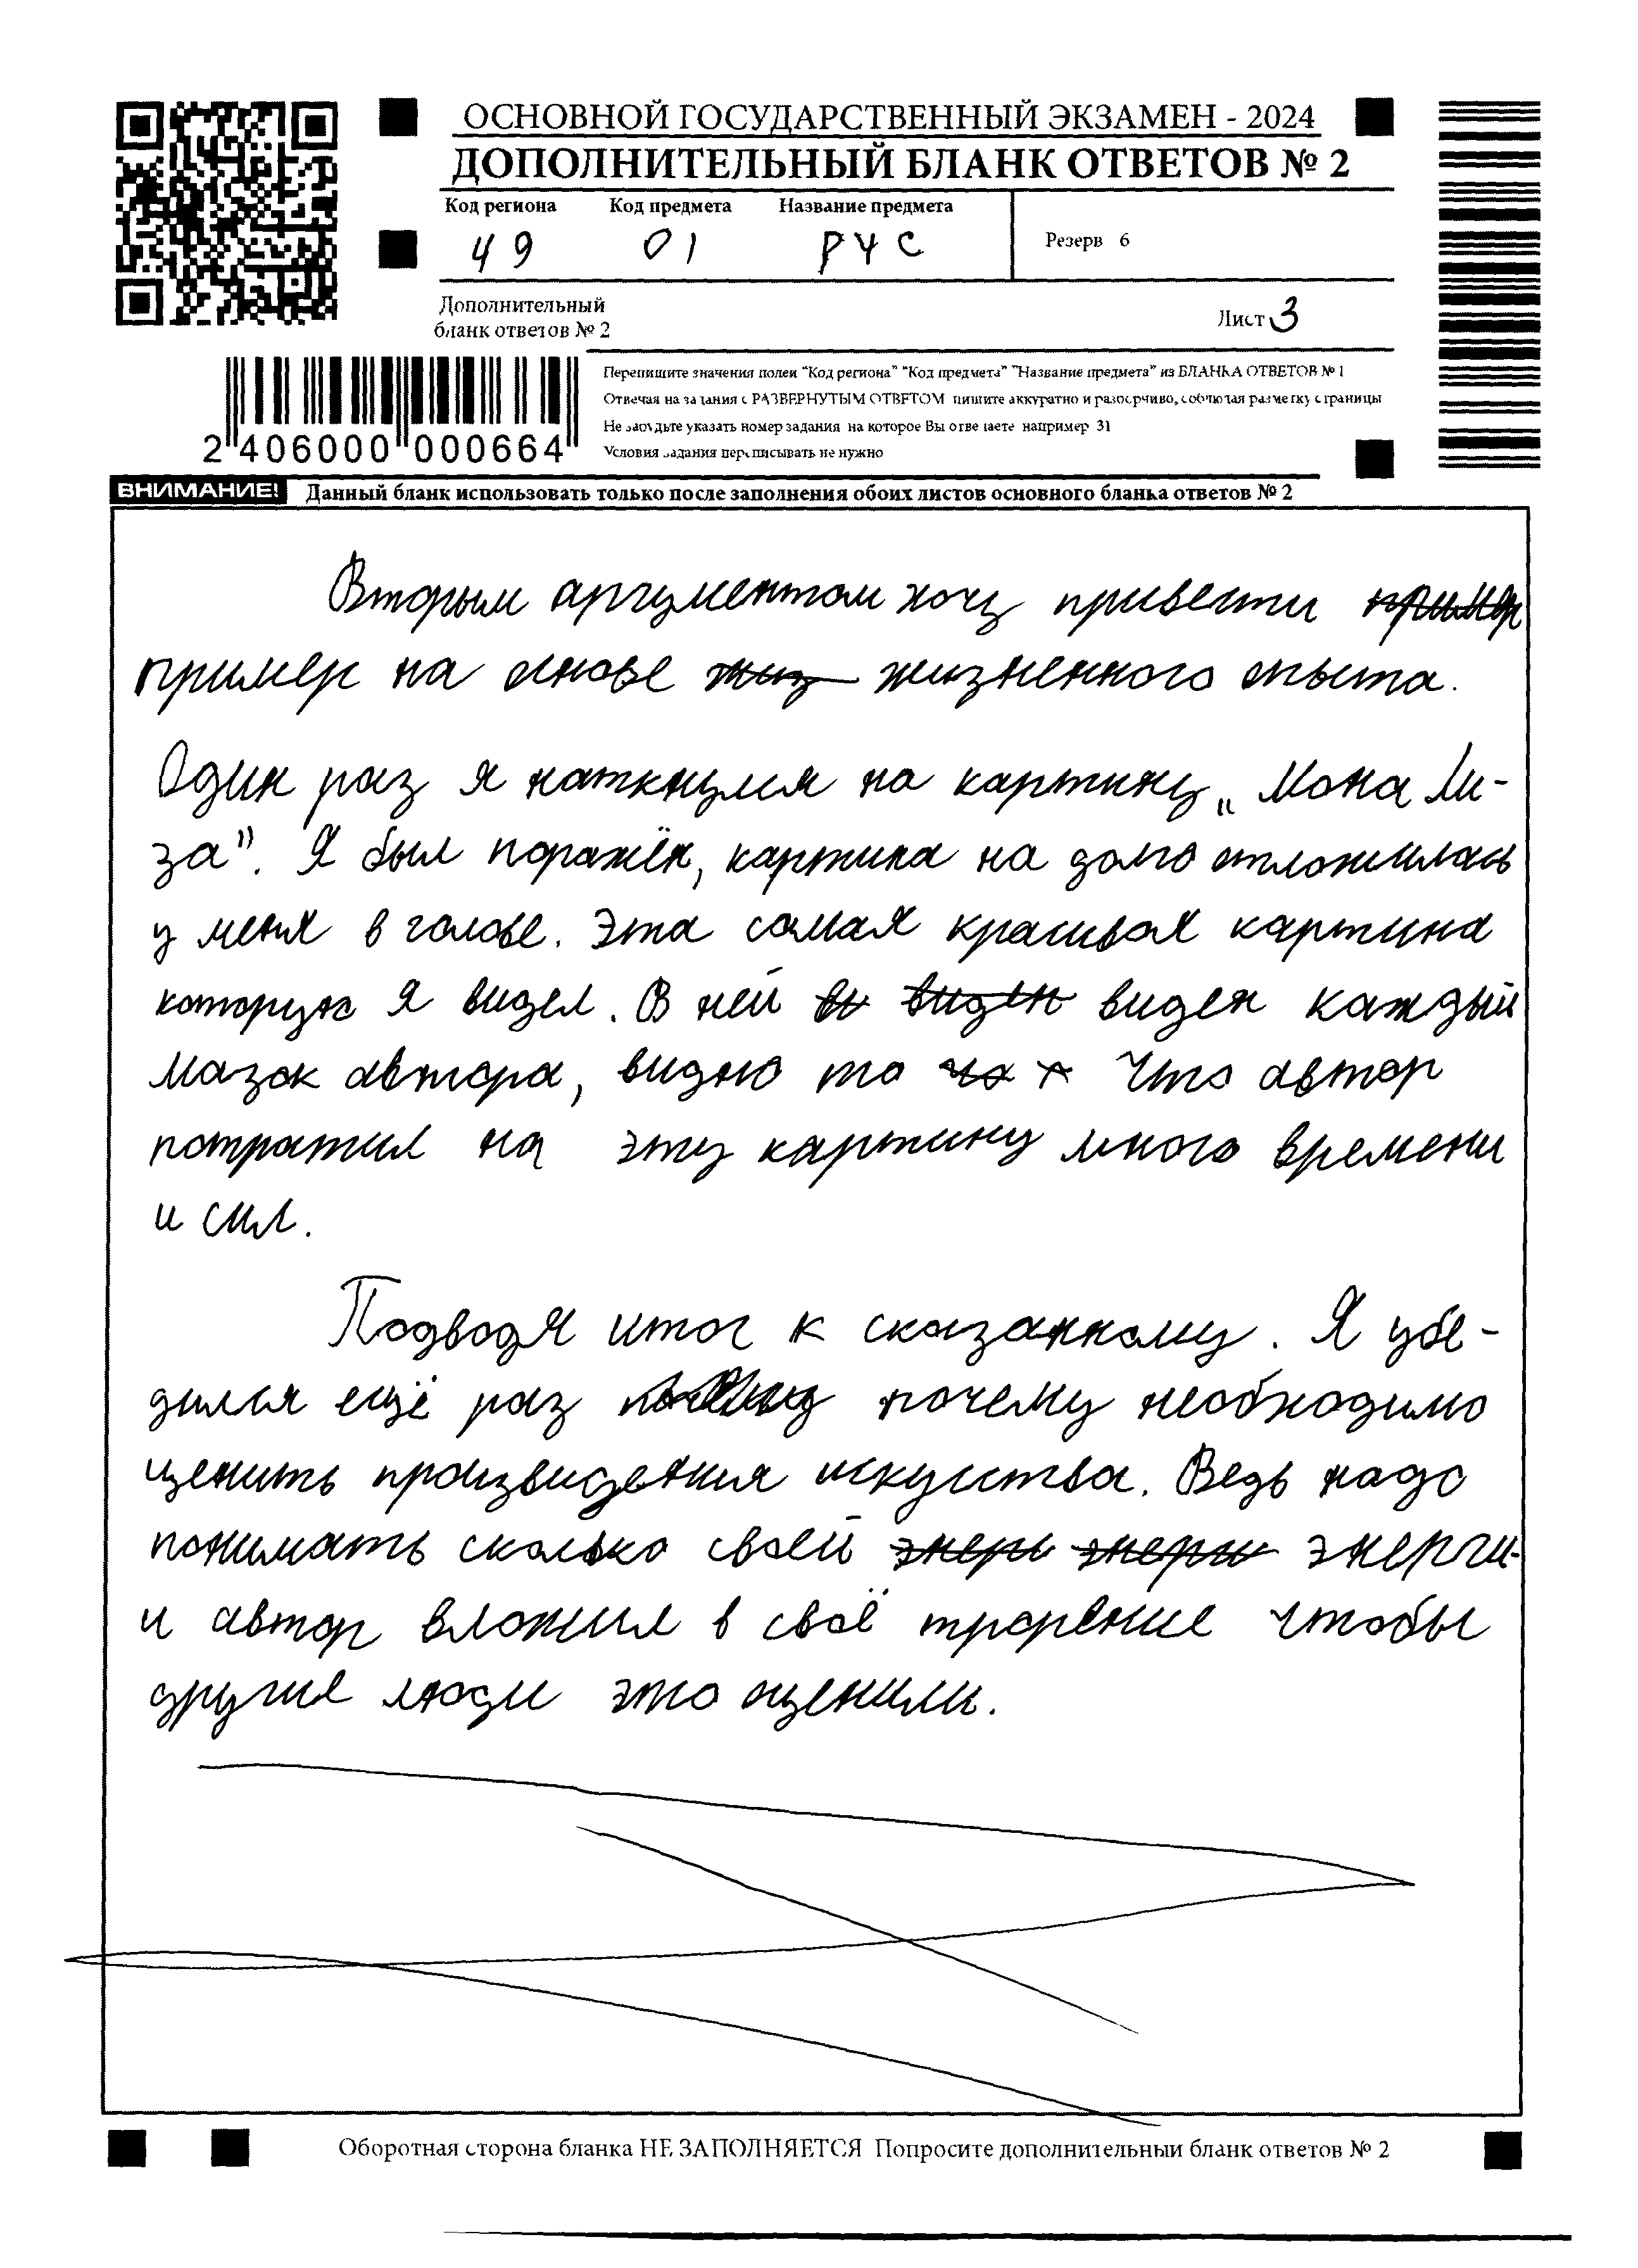 ОСНОВНОЙ ГОСУДАРСТВЕННЫЙ ЭКЗАМЕН - 2024
ДОПОЛНИТЕЛЬНЫЙ БЛАНК ОТВЕТОВ № 2
Код региона Код предмета Название предмета
49 01 РУС
Резерв 6
Дополнительный
бланк ответов № 2
Лист 3
Перепишите значения полей "Код региона" "Код предмета" "Название предмета" из БЛАНКА ОТВЕТОВ № 1
Отвечая на задания с РАЗВЕРНУТЫМ ОТВЕТОМ пишите аккуратно и разборчиво, соблюдая разметку страницы
Не забудьте указать номер задания на которое Вы отвечаете например 31
Условия задания переписывать не нужно
2 406000 000664
ВНИМАНИЕ! Данный бланк использовать только после заполнения обоих листов основного бланка ответов № 2
Вторым аргументом хочу привести пример
пример на основе жиз жизненного опыта.
Один раз я наткнулся на картину „Мона Ли-
за". Я был поражён, картина на долго отложилась
у меня в голове. Эта самая красивая картина
которую я видел. В ней ви виден виден каждый
мазок автора, видно то что автор
потратил на эту картину много времени
и сил.
Подводя итог к сказанному. Я убе-
дился ещё раз почему необходимо
ценить произвидения искуства. Ведь надо
понимать сколько своей энерги-
и автор вложил в своё творение чтобы
другие люди это оценили.
Оборотная сторона бланка НЕ ЗАПОЛНЯЕТСЯ Попросите дополнительный бланк ответов № 2